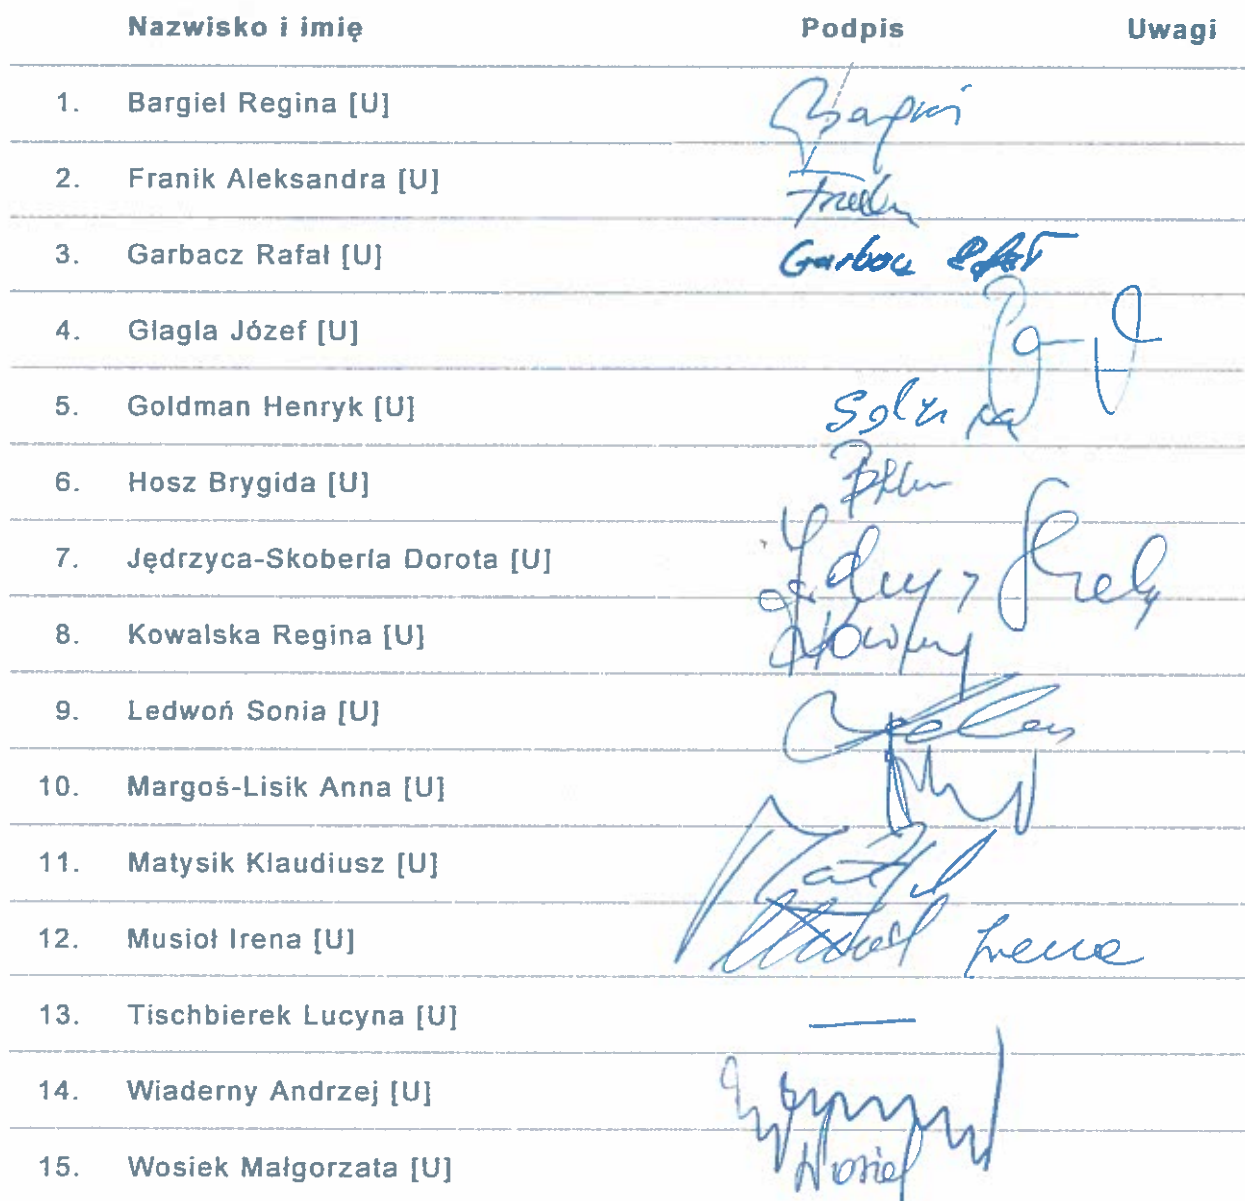 Nazwisko i imię Podpis Uwagi
1. Bargiel Regina [U]
2. Franik Aleksandra [U]
3. Garbacz Rafał [U] Garbacz Rafał
4. Glagla Józef [U]
5. Goldman Henryk [U]
6. Hosz Brygida [U]
7. Jędrzyca-Skoberla Dorota [U]
8. Kowalska Regina [U]
9. Ledwoń Sonia [U]
10. Margoś-Lisik Anna [U]
11. Matysik Klaudiusz [U]
12. Musioł Irena [U] Musioł Irena
13. Tischbierek Lucyna [U]
14. Wiaderny Andrzej [U]
15. Wosiek Małgorzata [U] Wosiek